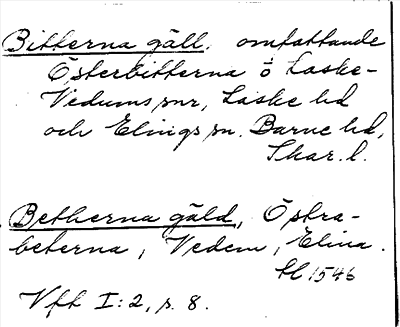 Bitterna gäll. omfattande
Österbitterna o Laske-
Vedums snr, Laske hd
och Elings sn. Barne hd,
Skar. l.
Betherna gäld, Östra-
beterna, Vedem, Elina.
1546
Vfk I:2, s. 8.